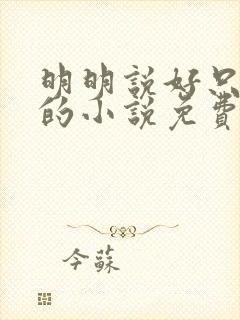 明明說好只
的小說免費
今蘇